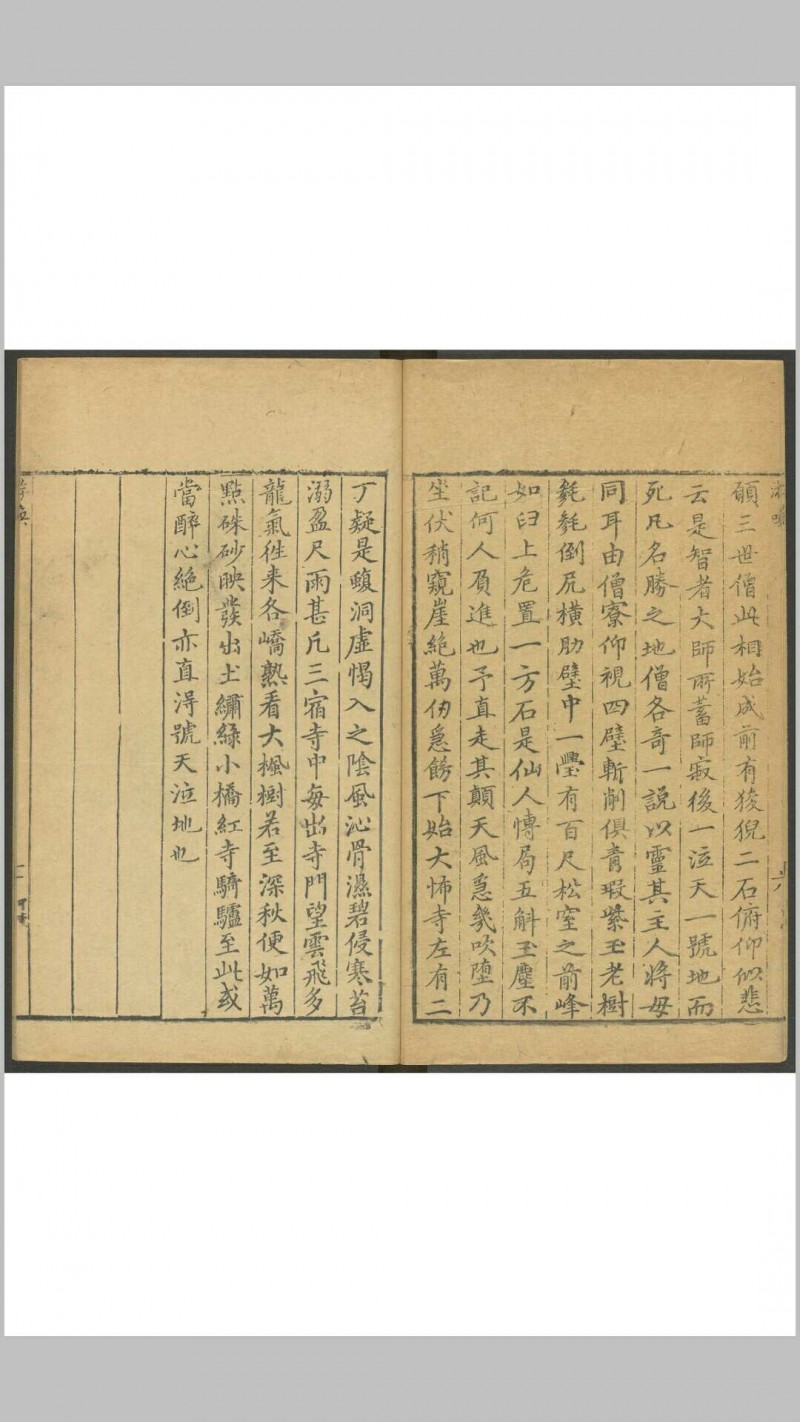 願三世僧此相始成前有狻猊二石俯仰似悲
云是智者大師所蓄師寂後一泣天一號地而
死凡名勝之地僧各奇一說以靈其主人將毋
同耳由僧寮仰視四壁斬削俱青瑕紫玉老樹
毿毿倒尻橫肋壁中一壘有百尺松窒之前峰
如臼上危置一方石是仙人愽局五斛玉塵不
記何人負進也予直走其顛天風急幾吹墮乃
坐伏稍窺崖絶萬仞急餝下始大怖寺左有二
丁疑是䶮洞虛愒入之陰風沁骨濕碧侵寒苔
溺盈尺雨甚凡三宿寺中每出寺門望雲飛多
龍氣徃来各嶠熟看大楓樹若至深秋便如萬
點硃砂映發出土繡緑小橋紅寺騎驢至此或
當醉心絶倒亦直淂號天泣地也
游喚